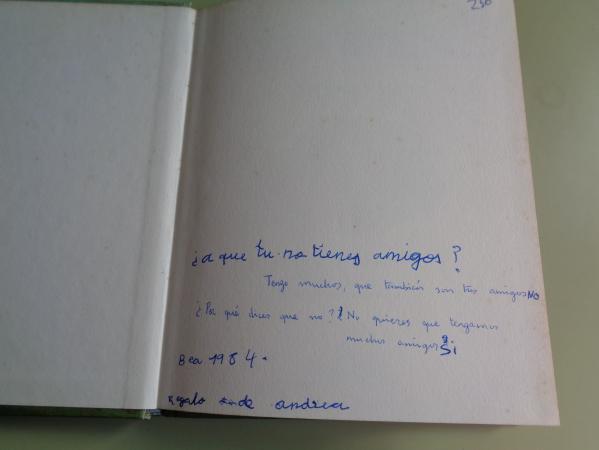 230
¿a que tu no tienes amigos?
Tengo muchos, que también son tus amigos NO
¿Por qué dices que no? ¿No quieres que tengamos
muchos amigos? Si
Bea 1984.
Regalo de andrea